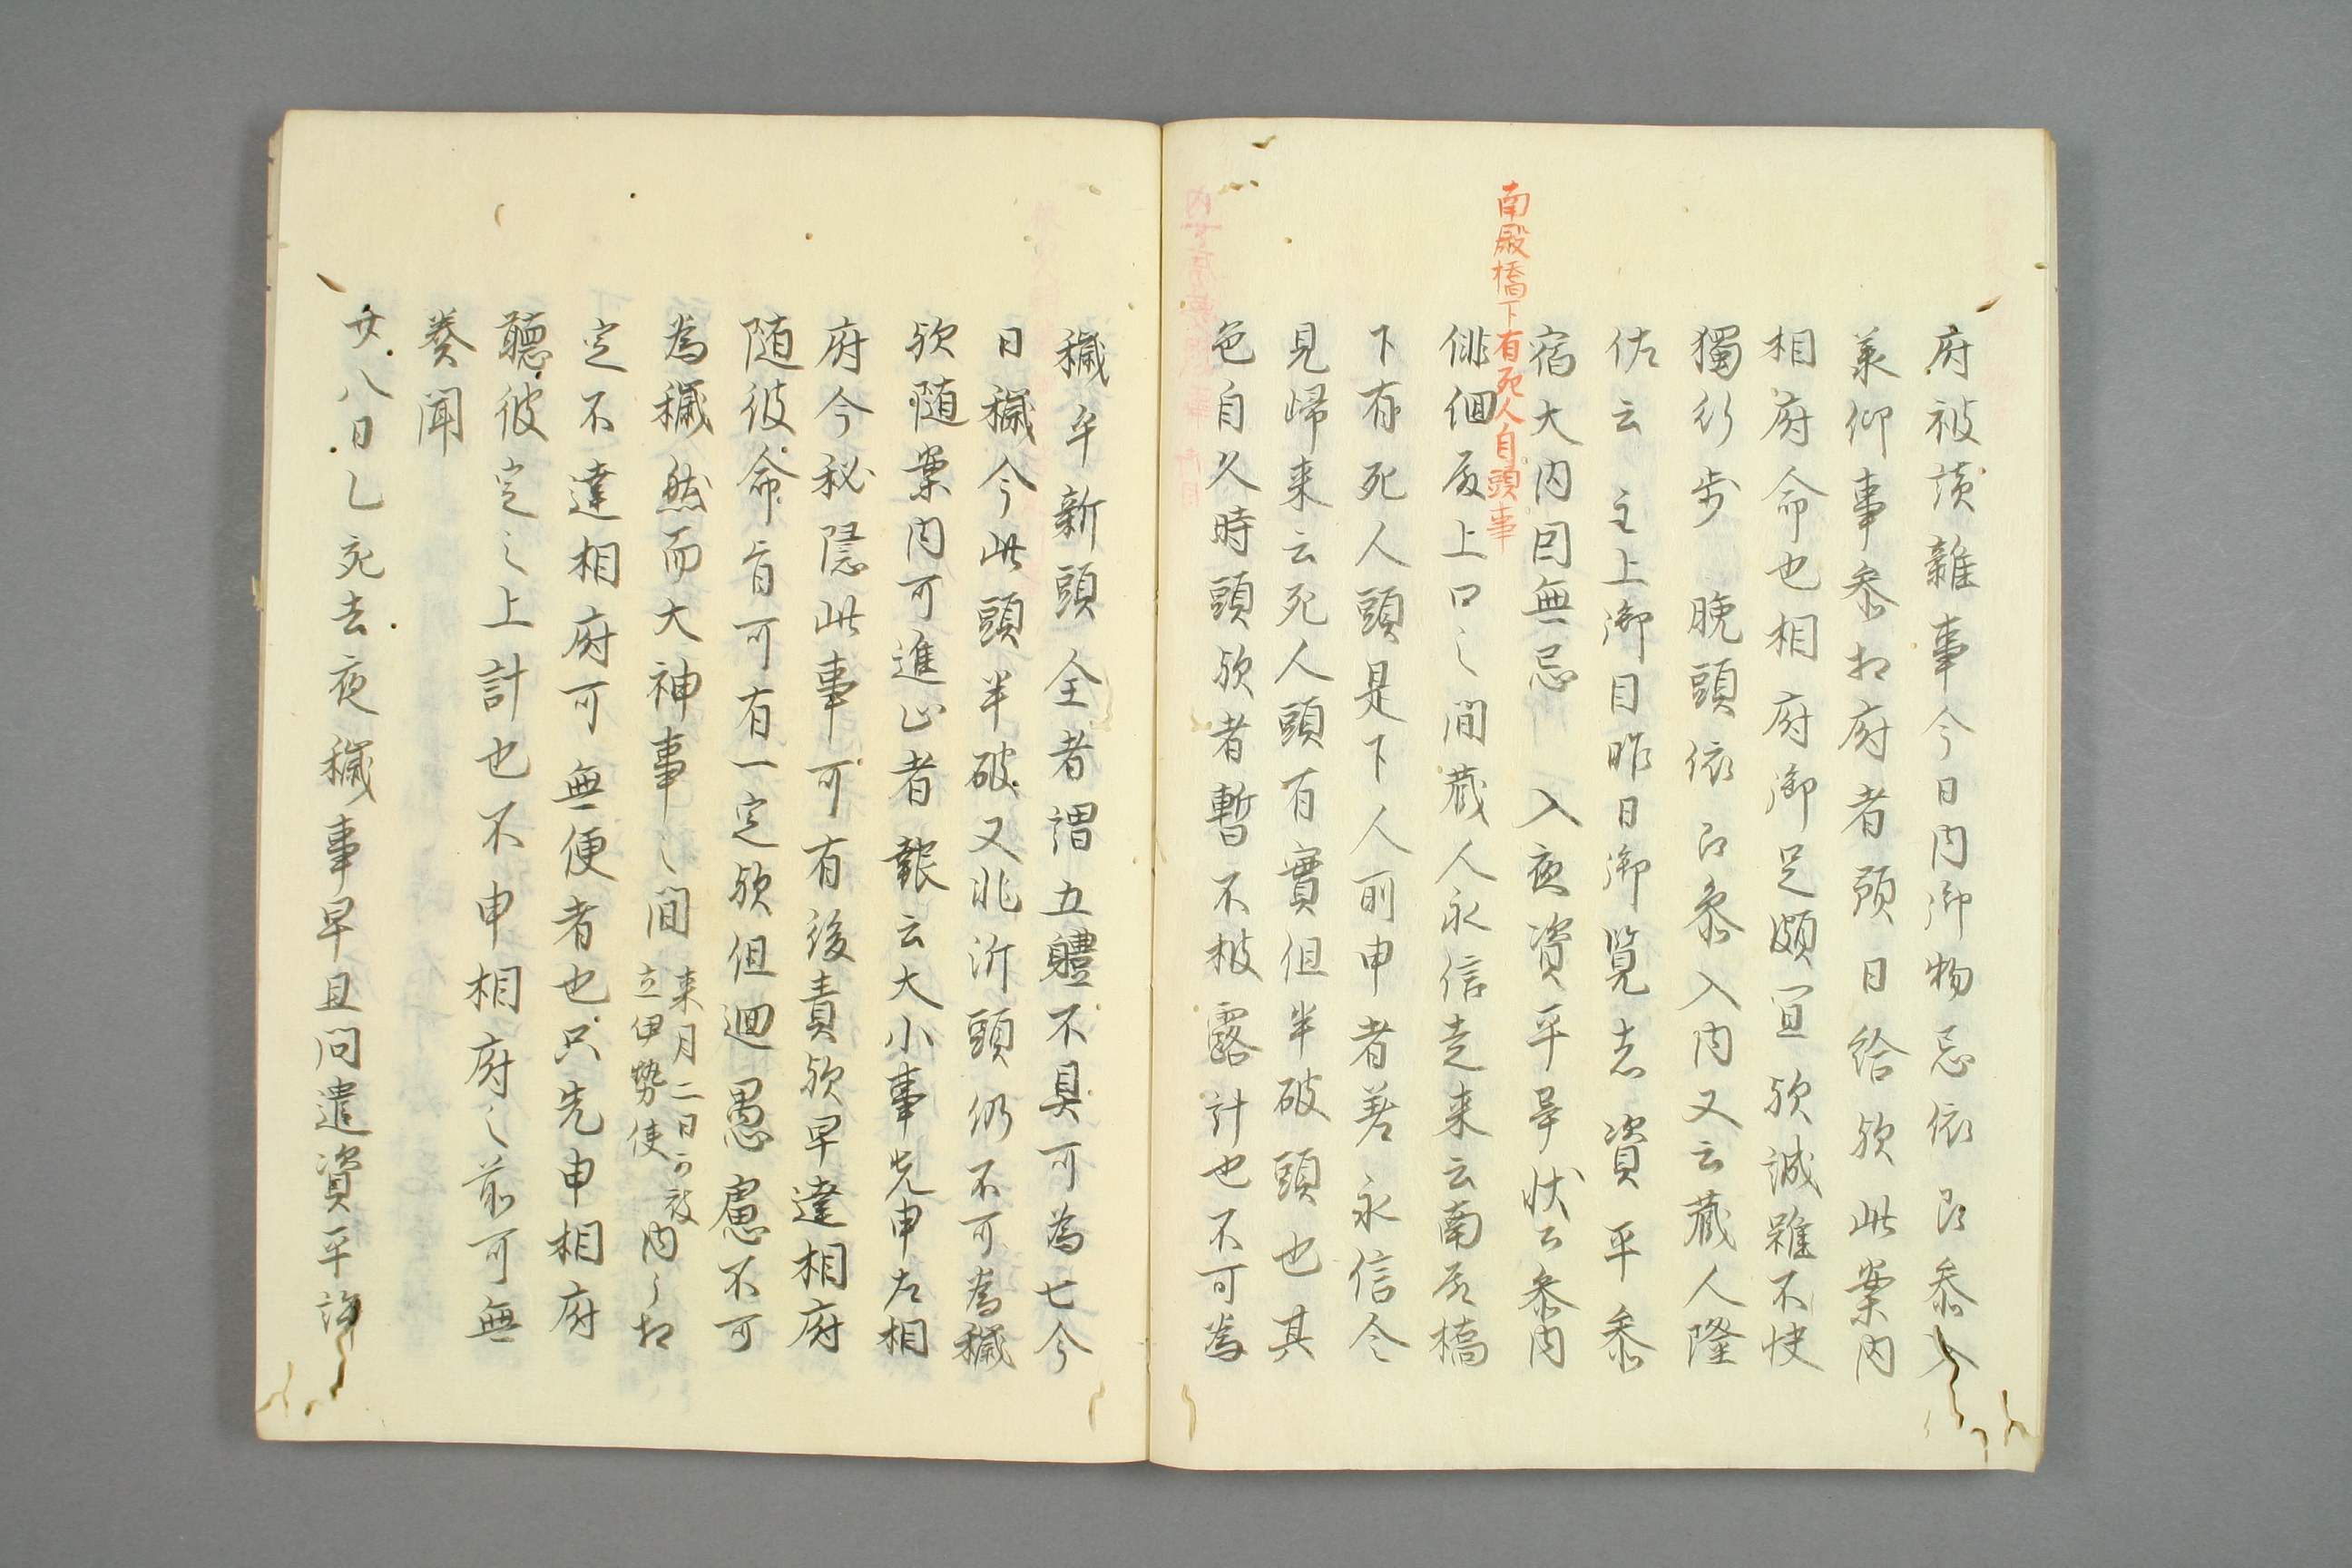 府被談雜事今日内御物忌依召参入
業仰事参相府者頭日給欤此案内
相府命也相府御足頗宜欤誠雖不快
獨行歩　晩頭依召参入内又云蔵人隆
佐云　主上御目昨日御覧者　資平参
宿大内因無忌　入夜資平挙状云参内
南殿橋下有死人自頭事
俳佪殿上口之間蔵人永信走来云南殿橋
下有死人頭是下人所申者差永信令
見帰来云死人頭有實但半破頭也其
色自久時頭欤者暫不披露計也不可為
穢牟新頭全者謂五體不具可為七今
日穢今此頭半破又非所頭仍不可為穢
欤随案内可進止者報云大小事先申左相
府今秘隠此事可有後責欤早達相府
随彼命旨可有一定欤但廻愚慮不可
為穢然而大神事之間来月二日可被立伊勢使内々相
定不達相府可無便者也只先申相府
聽彼定之上計也不申相府之前可無
奏聞
廿八日乙死去夜穢事早旦問遣資平許